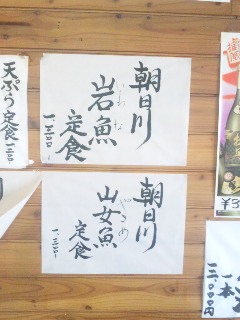 朝日川
岩魚
いわな
定食
一、三〇〇
朝日川
山女魚
やまめ
定食
一、三〇〇
天ぷら定食
一、三〇〇
¥3
一本
一三、〇〇〇円